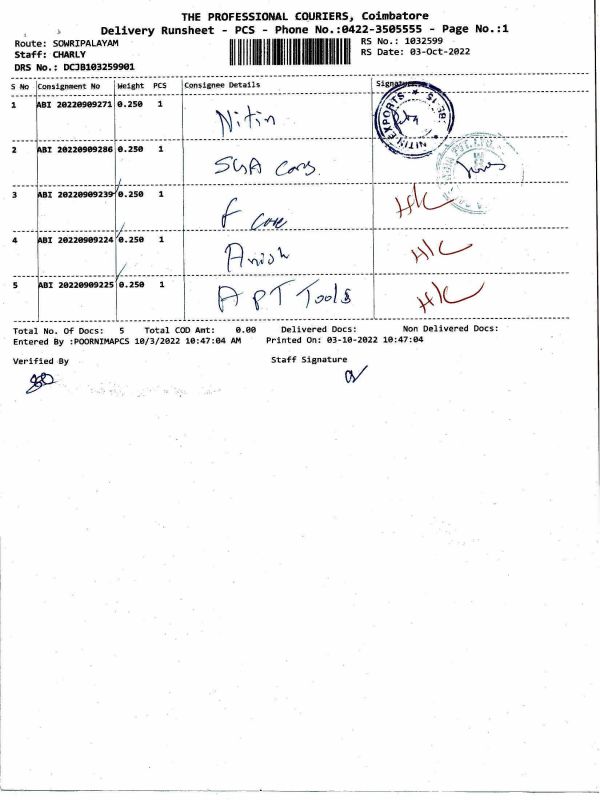 THE PROFESSIONAL COURIERS, Coimbatore
Delivery Runsheet - PCS - Phone No.:0422-3505555 - Page No.:1
Route: SOWRIPALAYAM
RS No.: 1032599
Staff: CHARLY
RS Date: 03-Oct-2022
DRS No.: DCJB103259901
S No Consignment No Weight PCS Consignee Details Signature
1 ABI 20220909271 0.250 1 Nitin
NITIN EXPORTS
2 ABI 20220909286 0.250 1
3 ABI 20220909239 0.250 1 f core H/C
4 ABI 20220909224 0.250 1 Anish H/C
5 ABI 20220909225 0.250 1 APT Tools H/C
Total No. Of Docs: 5 Total COD Amt: 0.00 Delivered Docs: Non Delivered Docs:
Entered By :POORNIMAPCS 10/3/2022 10:47:04 AM Printed On: 03-10-2022 10:47:04
Verified By Staff Signature